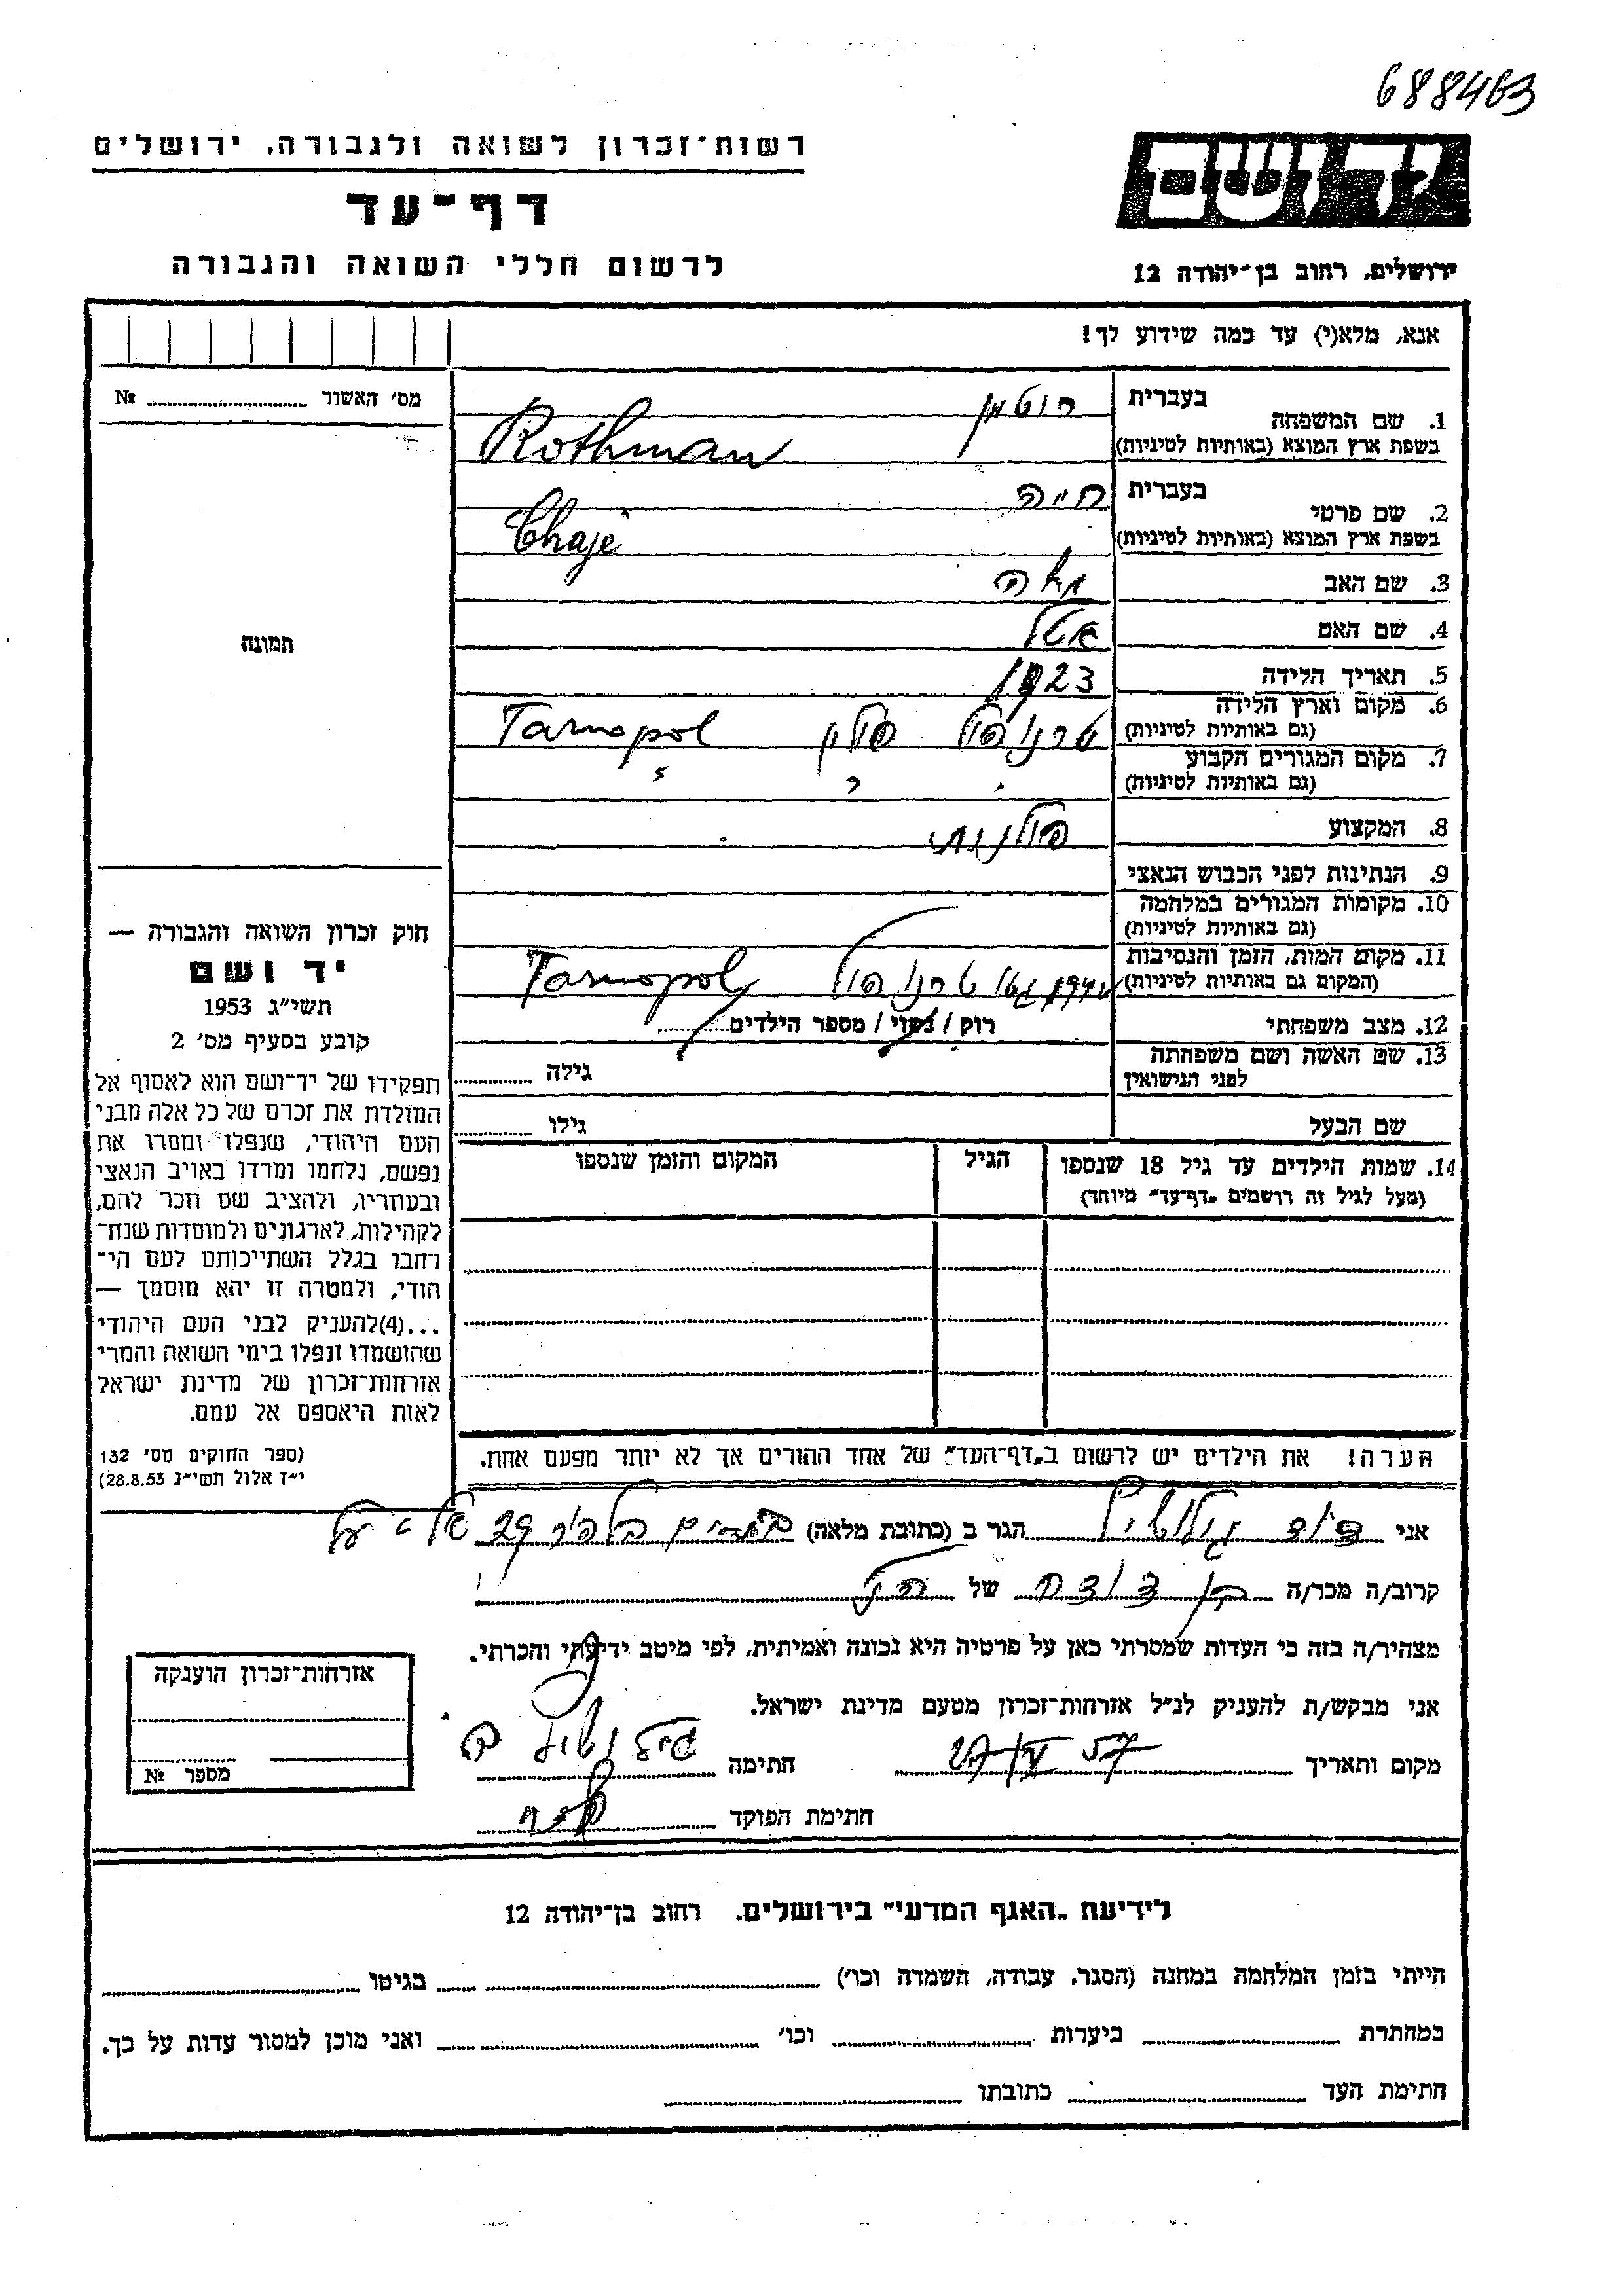 688463
רשות־זכרון לשואה ולגבורה, ירושלים
דף־עד
לרשום חללי השואה והגבורה
יד ושם
ירושלים, רחוב בן־יהודה 12
אנא, מלא(י) עד כמה שידוע לך!
מס׳ האשור № ....................
תמונה
חוק זכרון השואה והגבורה —
יד ושם
תשי״ג 1953
קובע בסעיף מס׳ 2
תפקידו של יד־ושם הוא לאסוף אל
המולדת את זכרם של כל אלה מבני
העם היהודי, שנפלו ומסרו את
נפשם, נלחמו ומרדו באויב הנאצי
ובעוזריו, ולהציב שם וזכר להם,
לקהילות, לארגונים ולמוסדות שנח־
רחבו בגלל השתייכותם לעם הי־
הודי, ולמטרה זו יהא מוסמך —
...(4)להעניק לבני העם היהודי
שהושמדו ונפלו בימי השואה והמרי
אזרחות־זכרון של מדינת ישראל
לאות היאספם אל עמם.
(ספר החוקים מס׳ 132
י״ז אלול תשי״ג 28.8.53)
1. שם המשפחה
בעברית רוטמן
בשפת ארץ המוצא (באותיות לטיניות) Rothman
2. שם פרטי
בעברית חיה
בשפת ארץ המוצא (באותיות לטיניות) Chaje
3. שם האב משה
4. שם האם אטל
5. תאריך הלידה 1923
6. מקום וארץ הלידה
(גם באותיות לטיניות) טרנופול פולין Tarnopol
7. מקום המגורים הקבוע
(גם באותיות לטיניות) " " "
8. המקצוע
9. הנתינות לפני הכבוש הנאצי פולנית
10. מקומות המגורים במלחמה
(גם באותיות לטיניות)
11. מקום המות, הזמן והנסיבות
(המקום גם באותיות לטיניות) גטו טרנופול Tarnopol
12. מצב משפחתי רוק / נשוי / מספר הילדים..........
13. שם האשה ושם משפחתה
לפני הנישואין גילה ..........
שם הבעל גילו ..........
14. שמות הילדים עד גיל 18 שנספו הגיל המקום והזמן שנספו
(מעל לגיל זה רושמים „דף־עד״ מיוחד)
הערה! את הילדים יש לרשום ב„דף־העד״ של אחד ההורים אך לא יותר מפעם אחת.
אני דוד הגר ב (כתובת מלאה) 29
קרוב/ה מכר/ה בן דודה של הנ״ל
מצהיר/ה בזה כי העדות שמסרתי כאן על פרטיה היא נכונה ואמיתית, לפי מיטב ידיעתי והכרתי.
אני מבקש/ת להעניק לנ״ל אזרחות־זכרון מטעם מדינת ישראל.
מקום ותאריך 57 חתימה
חתימת הפוקד
אזרחות־זכרון הוענקה
מספר №
לידיעת „האגף המדעי״ בירושלים. רחוב בן־יהודה 12
הייתי בזמן המלחמה במחנה (הסגר, עבודה, השמדה וכו׳) .......... בגיטו ..........
במחתרת .......... ביערות .......... וכו׳ .......... ואני מוכן למסור עדות על כך.
חתימת העד .......... כתובתו ..........